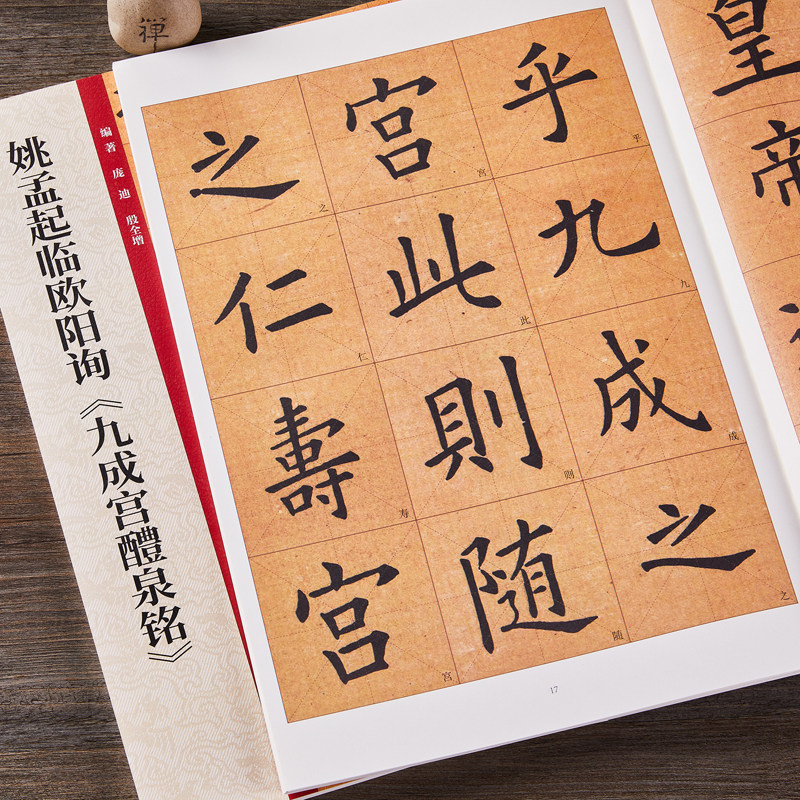 禪
姚孟起临欧阳询《九成宫醴泉铭》
编著 庞迪 殷全增
皇帝
乎九成之
宫此則随
之仁壽宫
乎
九
成
之
宫
此
则
随
之
仁
寿
宫
17